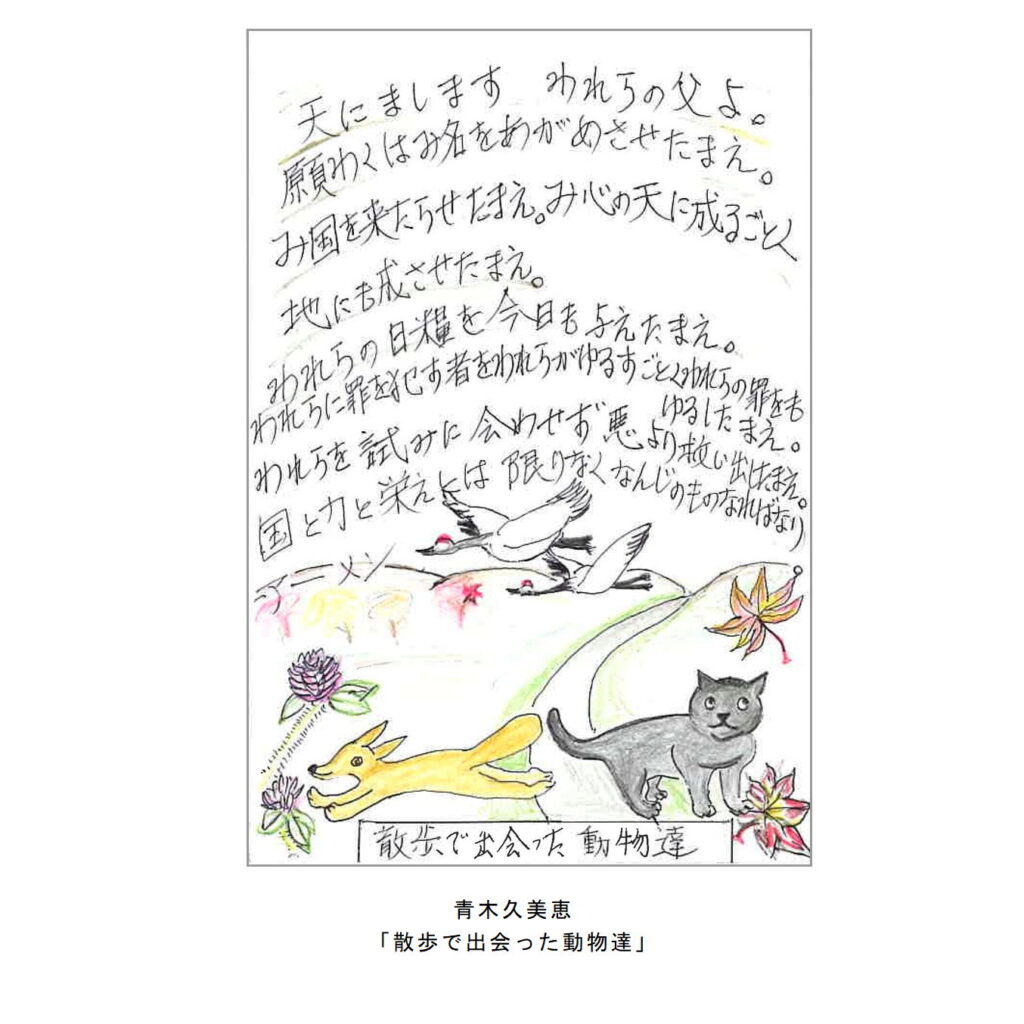 天にまします　われらの父よ。
願わくはみ名をあがめさせたまえ。
み国を来たらせたまえ。み心の天に成るごとく
地にも成させたまえ。
われらの日糧を今日も与えたまえ。
われらに罪を犯す者をわれらがゆるすごとくわれらの罪をも
ゆるしたまえ。
われらを試みに会わせず悪より救い出したまえ。
国と力と栄えとは限りなくなんじのものなればなり。
アーメン
散歩で出会った動物達
青木久美恵
「散歩で出会った動物達」